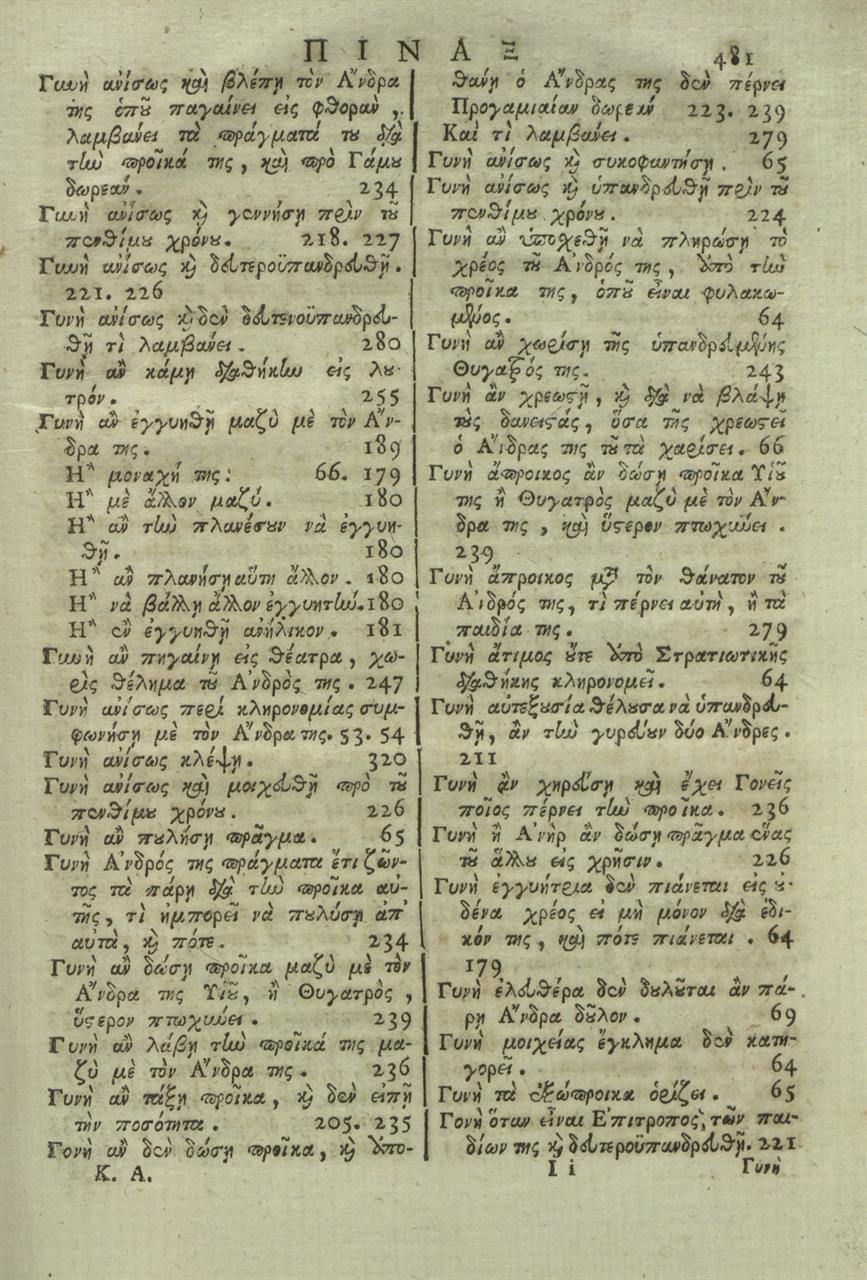 ΠΙΝΑΞ 481
Γυνὴ ἀνίσως καὶ βλέπῃ τὸν Ἄνδρα
της ὁποῦ παγαίνει εἰς φθορὰν,
λαμβάνει τὰ πράγματά του διὰ
τὴν προῖκά της, καὶ πρὸ Γάμου
δωρεάν. 234
Γυνὴ ἀνίσως καὶ γεννήσῃ πρὶν τοῦ
πενθίμου χρόνου. 218. 227
Γυνὴ ἀνίσως καὶ δευτεροϋπανδρευθῇ.
221. 226
Γυνὴ ἀνίσως καὶ δὲν δευτεροϋπανδρευ-
θῇ τὶ λαμβάνει. 280
Γυνὴ ἂν κάμῃ διαθήκην εἰς λου-
τρόν. 255
Γυνὴ ἂν ἐγγυηθῇ μαζὺ μὲ τὸν Ἄν-
δρα της. 189
Ἢ μοναχή της: 66. 179
Ἢ μὲ ἄλλον μαζύ. 180
Ἢ ἂν τὴν πλανέσουν νὰ ἐγγυη-
θῇ. 180
Ἢ ἂν πλανήσῃ αὕτη ἄλλον. 180
Ἢ νὰ βάλλῃ ἄλλον ἐγγυητὴν. 180
Ἢ ἂν ἐγγυηθῇ ἀνήλικον. 181
Γυνὴ ἂν πηγαίνῃ εἰς θέατρα, χω-
ρὶς θέλημα τοῦ Ἀνδρὸς της. 247
Γυνὴ ἀνίσως περὶ κληρονομίας συμ-
φωνήσῃ μὲ τὸν Ἄνδρα της. 53. 54
Γυνὴ ἀνίσως κλέψῃ. 320
Γυνὴ ἀνίσως καὶ μοιχευθῇ πρὸ τοῦ
πενθίμου χρόνου. 226
Γυνὴ ἂν πουλήσῃ πρᾶγμα. 65
Γυνὴ Ἀνδρός της πράγματα ἔτι ζῶν-
τος τὰ πάρῃ διὰ τὴν προῖκα αὐ-
τῆς, τὶ ἠμπορεῖ νὰ πουλύσῃ ἀπ'
αὐτὰ, καὶ πότε. 234
Γυνὴ ἂν δώσῃ προῖκα μαζὺ μὲ τὸν
Ἄνδρα της Υἱοῦ, ἢ Θυγατρὸς,
ὕστερον πτωχύνει. 239
Γυνὴ ἂν λάβῃ τὴν προῖκά της μα-
ζὺ μὲ τὸν Ἄνδρα της. 236
Γυνὴ ἂν τάξῃ προῖκα, καὶ δὲν εἰπῇ
τὴν ποσότητα. 205. 235
Γονὴ ἂν δὲν δώσῃ προῖκα, καὶ ἀπο-
Κ. Α.
θάνῃ ὁ Ἄνδρας της δὲν πέρνει
Προγαμιαίαν δωρεὰν 223. 239
Καὶ τὶ λαμβάνει. 279
Γυνὴ ἀνίσως καὶ συκοφαντήσῃ. 65
Γυνὴ ἀνίσως καὶ ὑπανδρευθῇ πρὶν τοῦ
πενθίμου χρόνου. 224
Γυνὴ ἂν ὑποχεθῇ νὰ πληρώσῃ τὸ
χρέος τοῦ Ἀνδρός της, ἀπὸ τὴν
προῖκα της, ὁποῦ εἶναι φυλακω-
μένος. 64
Γυνὴ ἂν χωρίσῃ τῆς ὑπανδρευμένης
Θυγατρός της. 243
Γυνὴ ἂν χρεωστῇ, καὶ διὰ νὰ βλάψῃ
τοὺς δανειστάς, ὅσα τῆς χρεωστεῖ
ὁ Ἄνδρας της τοῦ τὰ χαρίσει. 66
Γυνὴ ἄπροικος ἂν δώσῃ προῖκα Υἱοῦ
της ἢ Θυγατρὸς μαζὺ μὲ τὸν Ἄν-
δρα της, καὶ ὕστερον πτωχύνει.
239
Γυνὴ ἄπροικος μετὰ τὸν θάνατον τοῦ
Ἀνδρός της, τὶ πέρνει αὐτὴ, ἢ τὰ
παιδία της. 279
Γυνὴ ἄτιμος οὔτε ἀπὸ Στρατιωτικῆς
διαθήκης κληρονομεῖ. 64
Γυνὴ αὐτεξουσία θέλουσα νὰ ὑπανδρευ-
θῇ, ἂν τὴν γυρεύουν δύο Ἄνδρες.
211
Γυνὴ ἂν χηρεύσῃ καὶ ἔχει Γονεῖς
ποῖος πέρνει τὴν προῖκα. 236
Γυνὴ ἢ Ἀνὴρ ἂν δώσῃ πρᾶγμα ἕνας
τοῦ ἄλλου εἰς χρῆσιν. 226
Γυνὴ ἐγγυήτρια δὲν πιάνεται εἰς οὐ-
δένα χρέος εἰ μὴ μόνον διὰ ἐδι-
κόν της, καὶ πότε πιάνεται. 64
179
Γυνὴ ἐλευθέρα δὲν δουλοῦται ἂν πά-
ρῃ Ἄνδρα δοῦλον. 69
Γυνὴ μοιχείας ἔγκλημα δὲν κατη-
γορεῖ. 64
Γυνὴ τὰ ἐξώπροικα ὁρίζει. 65
Γονὴ ὅταν εἶναι Ἐπιτροπος, τῶν παι-
δίων της καὶ δευτεροϋπανδρευθῇ. 221
I i Γυνὴ